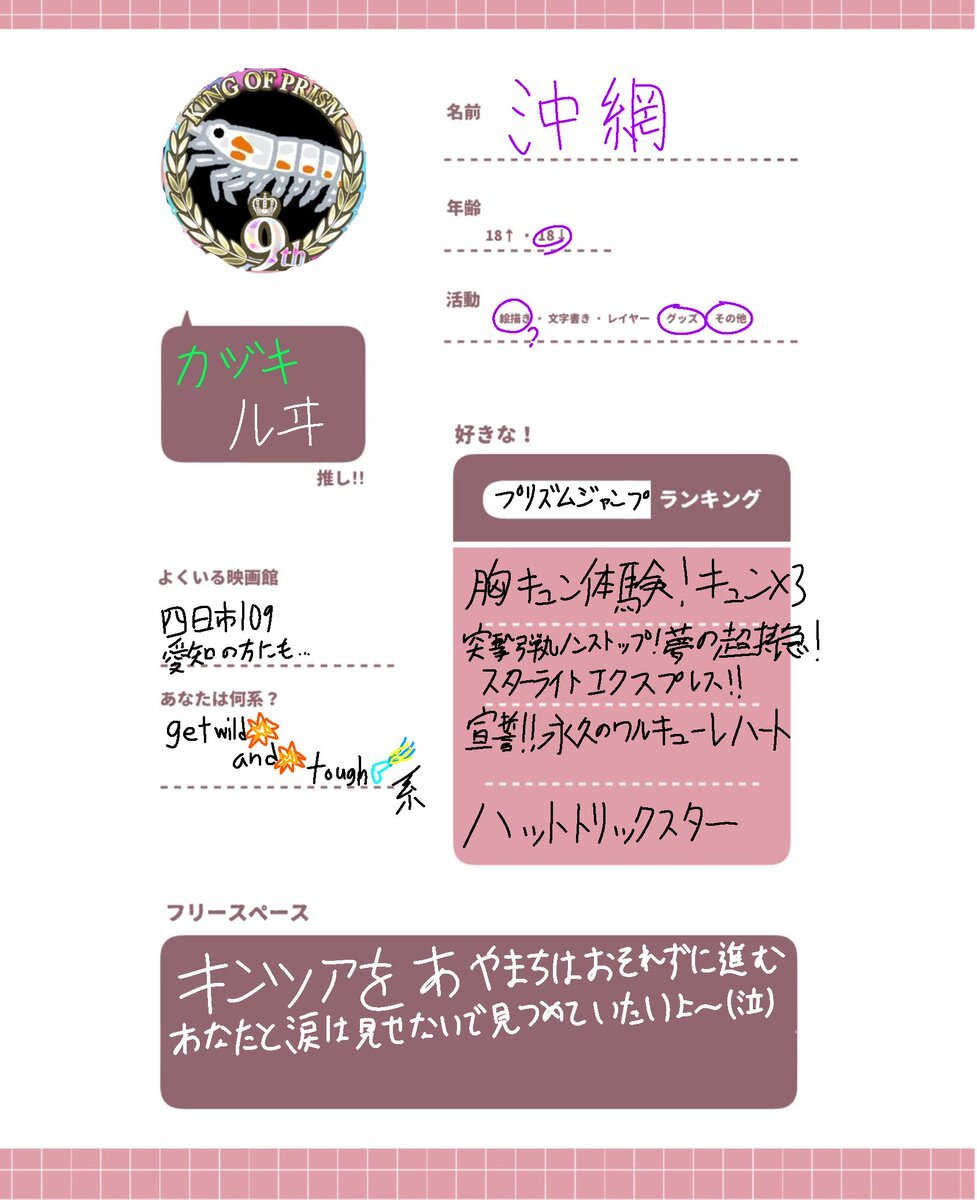 KING OF PRISM
9th
名前
沖網
年齢
18↑ ・ 18↓
活動
絵描き ・ 文字書き ・ レイヤー ・ グッズ ・ その他
?
カヅキ
ルヰ
推し!!
好きな！
プリズムジャンプ ランキング
胸キュン体験！キュン×3
突撃弾丸ノンストップ！夢の超特急！
スターライトエクスプレス!!
宣誓!!永久のワルキューレハート
ハットトリックスター
よくいる映画館
四日市109
愛知の方にも…
あなたは何系？
get wild
and
tough
系
フリースペース
キンツアをあやまちはおそれずに進む
あなたと涙は見せないで見つめていたいよ〜(泣)